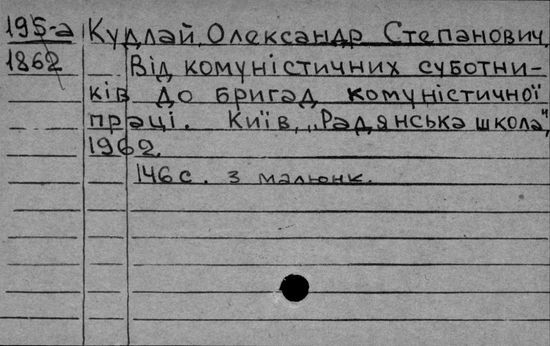 195-а Кудлай, Олександр Степанович.
1862 Від комуністичних суботни-
ків до бригад комуністичної
праці. Київ, „Радянська школа",
1962.
146 с. з малюнк.